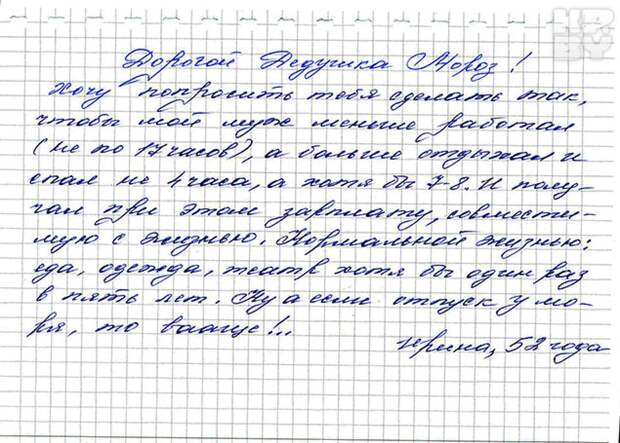 Дорогой Дедушка Мороз!
Хочу попросить тебя сделать так,
чтобы мой муж меньше работал
(не по 17 часов), а больше отдыхал и
спал не 4 часа, а хотя бы 7-8. И полу-
чал при этом зарплату, совмести-
мую с жизнью. Нормальной жизнью:
еда, одежда, театр хотя бы один раз
в пять лет. Ну а если отпуск у мо-
ря, то ваще!..
Ирина, 52 года